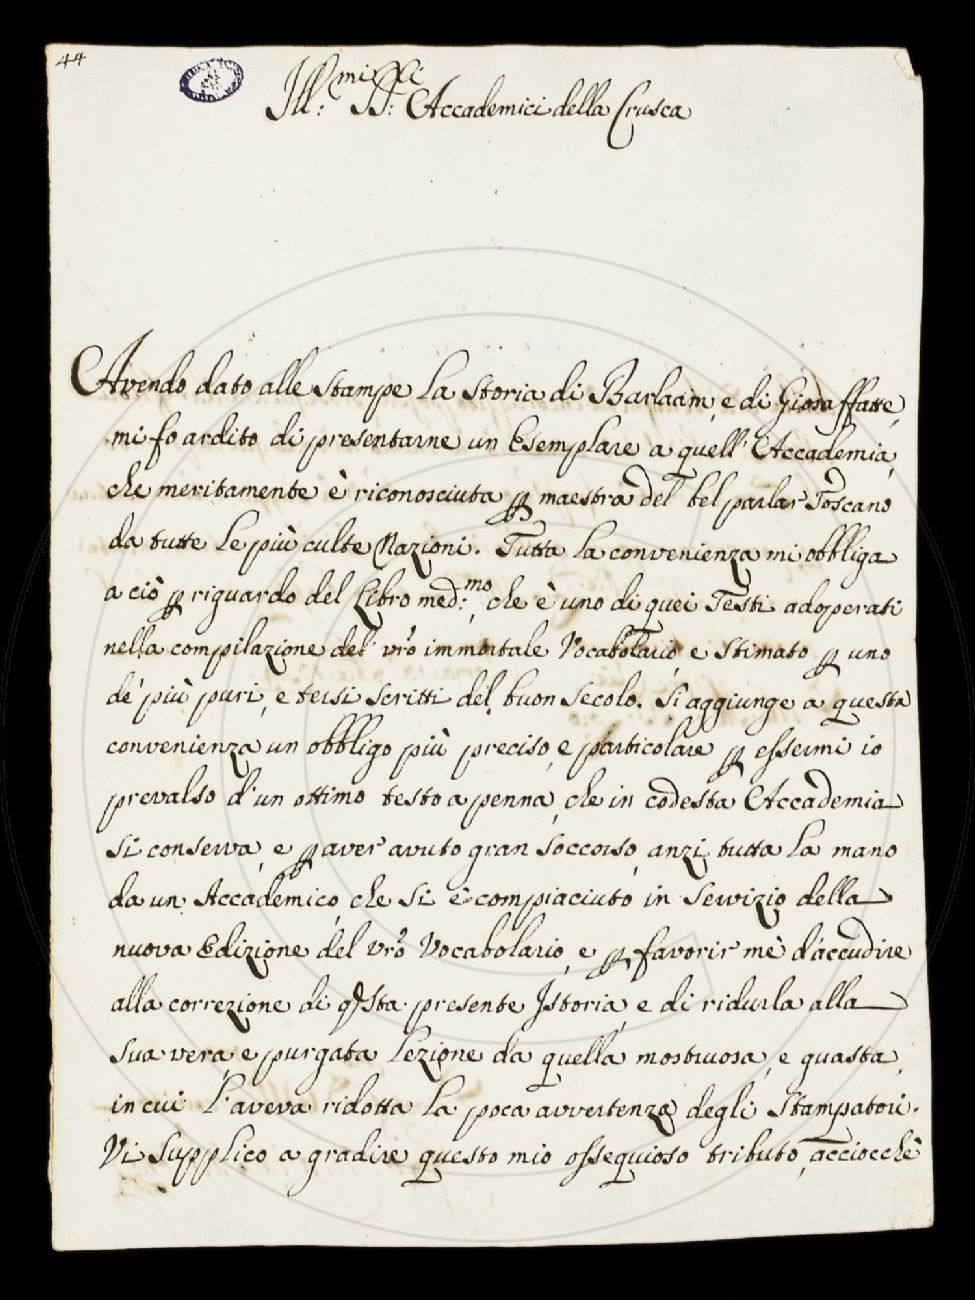 44
Ill:mi SS:ri Accademici della Crusca
Avendo dato alle Stampe la Storia di Barlaam, e di Giosaffatte,
mi fo ardito di presentarne un Esemplare a quell' Accademia,
che meritamente è riconosciuta p maestra del bel parlar Toscano
da tutte le più culte Nazioni. Tutta la convenienza mi obbliga
a ciò p riguardo del Libro med:mo, che è uno di quei Testi adoperati
nella compilazione del vrõ immortale Vocabolario, e stimato p uno
de' più puri, e tersi scritti del buon Secolo. Si aggiunge a questa
convenienza un obbligo più preciso, e particolare p essermi io
prevalso d'un ottimo testo a penna, che in codesta Accademia
si conserva, e p aver avuto gran soccorso, anzi tutta la mano
da un Accademico, che si è compiaciuto, in servizio della
nuova Edizione del vrõ Vocabolario, e p favorir me d'accudire
alla correzione di qsta presente Istoria, e di ridurla alla
sua vera, e purgata Lezione da quella mostruosa, e guasta,
in cui l'aveva ridotta la poca avvertenza degli Stampatori.
Vi supplico a gradire questo mio ossequioso tributo, acciocchè